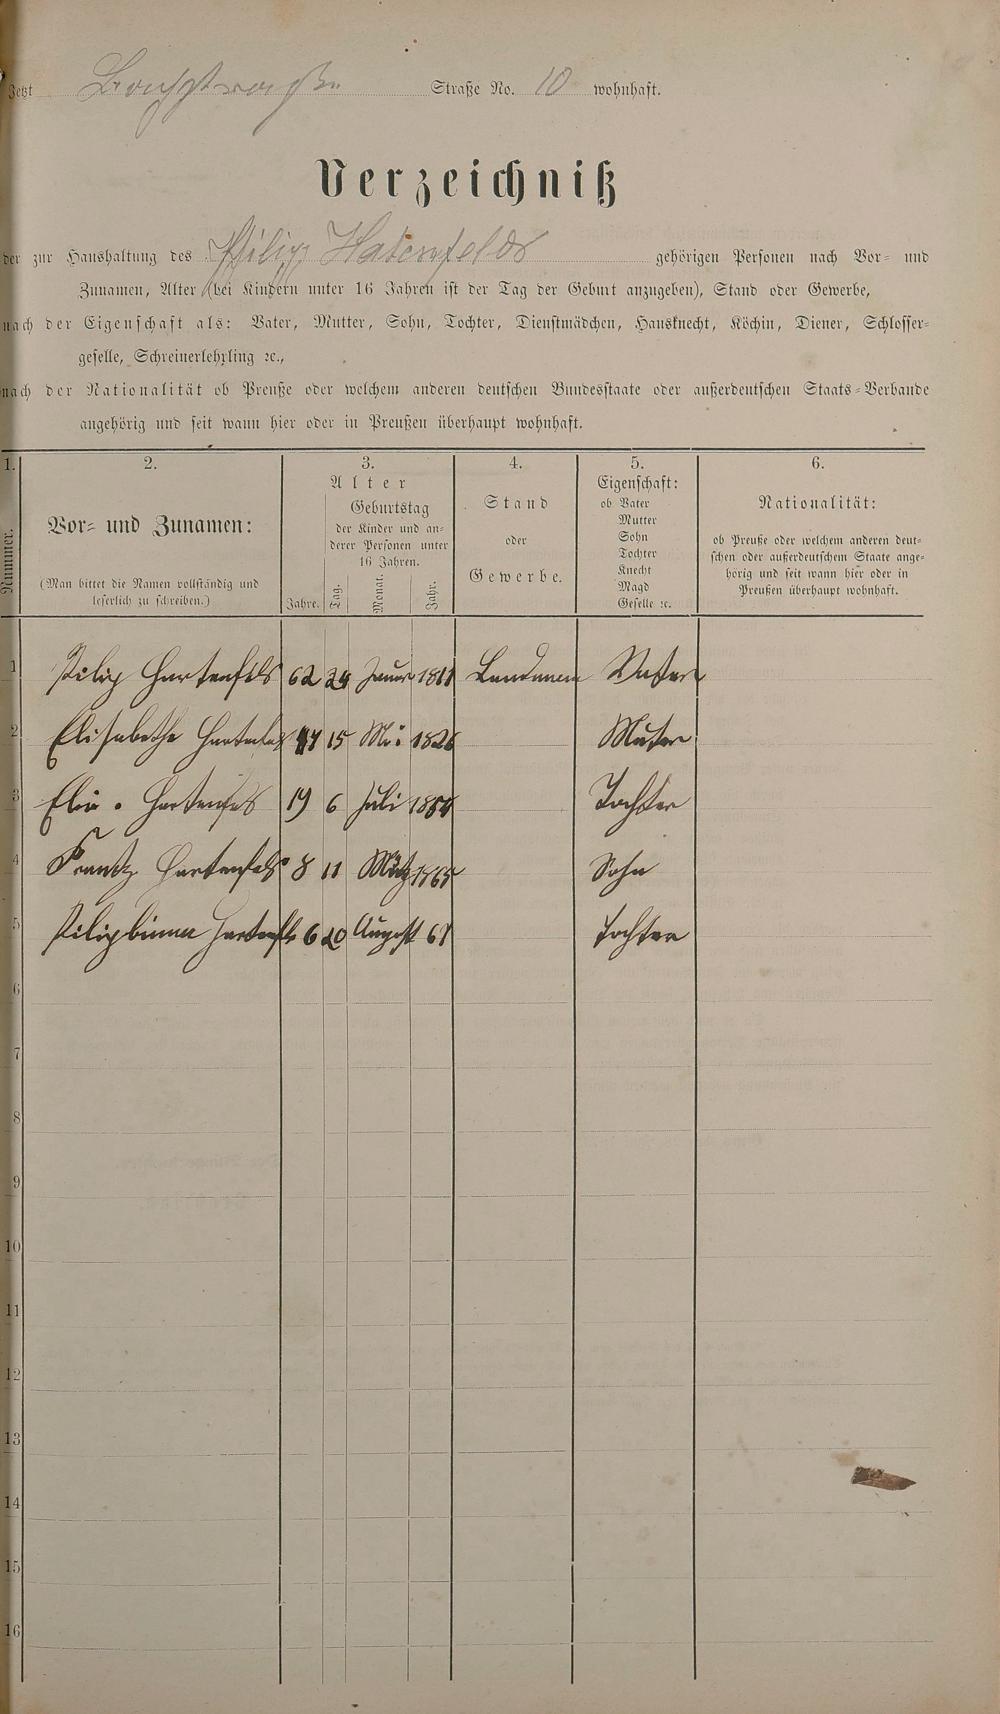 Jetzt Straße No. 10 wohnhaft.
Verzeichniß
der zur Haushaltung des Philipp Hatenfelds gehörigen Personen nach Vor- und
Zunamen, Alter (bei Kindern unter 16 Jahren ist der Tag der Geburt anzugeben), Stand oder Gewerbe,
nach der Eigenschaft als: Vater, Mutter, Sohn, Tochter, Dienstmädchen, Hausknecht, Köchin, Diener, Schlosser-
geselle, Schreinerlehrling ꝛc.,
nach der Nationalität ob Preuße oder welchem anderen deutschen Bundesstaate oder außerdeutschen Staats-Verbande
angehörig und seit wann hier oder in Preußen überhaupt wohnhaft.
1. 2. 3. 4. 5. 6.
Nummer.
Vor- und Zunamen:
(Man bittet die Namen vollständig und
leserlich zu schreiben.)
Alter
Jahre.
Geburtstag
der Kinder und an-
derer Personen unter
16 Jahren.
Tag. Monat. Jahr.
Stand
oder
Gewerbe.
Eigenschaft:
ob Vater
Mutter
Sohn
Tochter
Knecht
Magd
Geselle ꝛc.
Nationalität:
ob Preuße oder welchem anderen deut-
schen oder außerdeutschem Staate ange-
hörig und seit wann hier oder in
Preußen überhaupt wohnhaft.
1 Pilip Hartenfels 62 24 Januar 1811 Landmann Vater
2 Elisabethe Hartenfels 47 15 Mai 1826 Muter
3 Hartenfels 19 6 Juli 1854 Tochter
4 Frantz Hartenfels 8 11 März 1865 Sohn
5 Hartenfels 6 20 August 67 Tochter
6
7
8
9
10
11
12
13
14
15
16